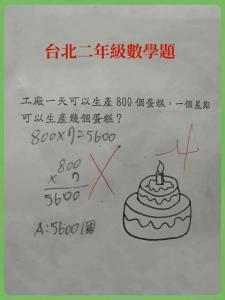 台北二年級數學題
工廠一天可以生產 800 個蛋糕，一個星期
可以生產幾個蛋糕？
800×7=5600
800
× 7
5600
-4
A:5600個